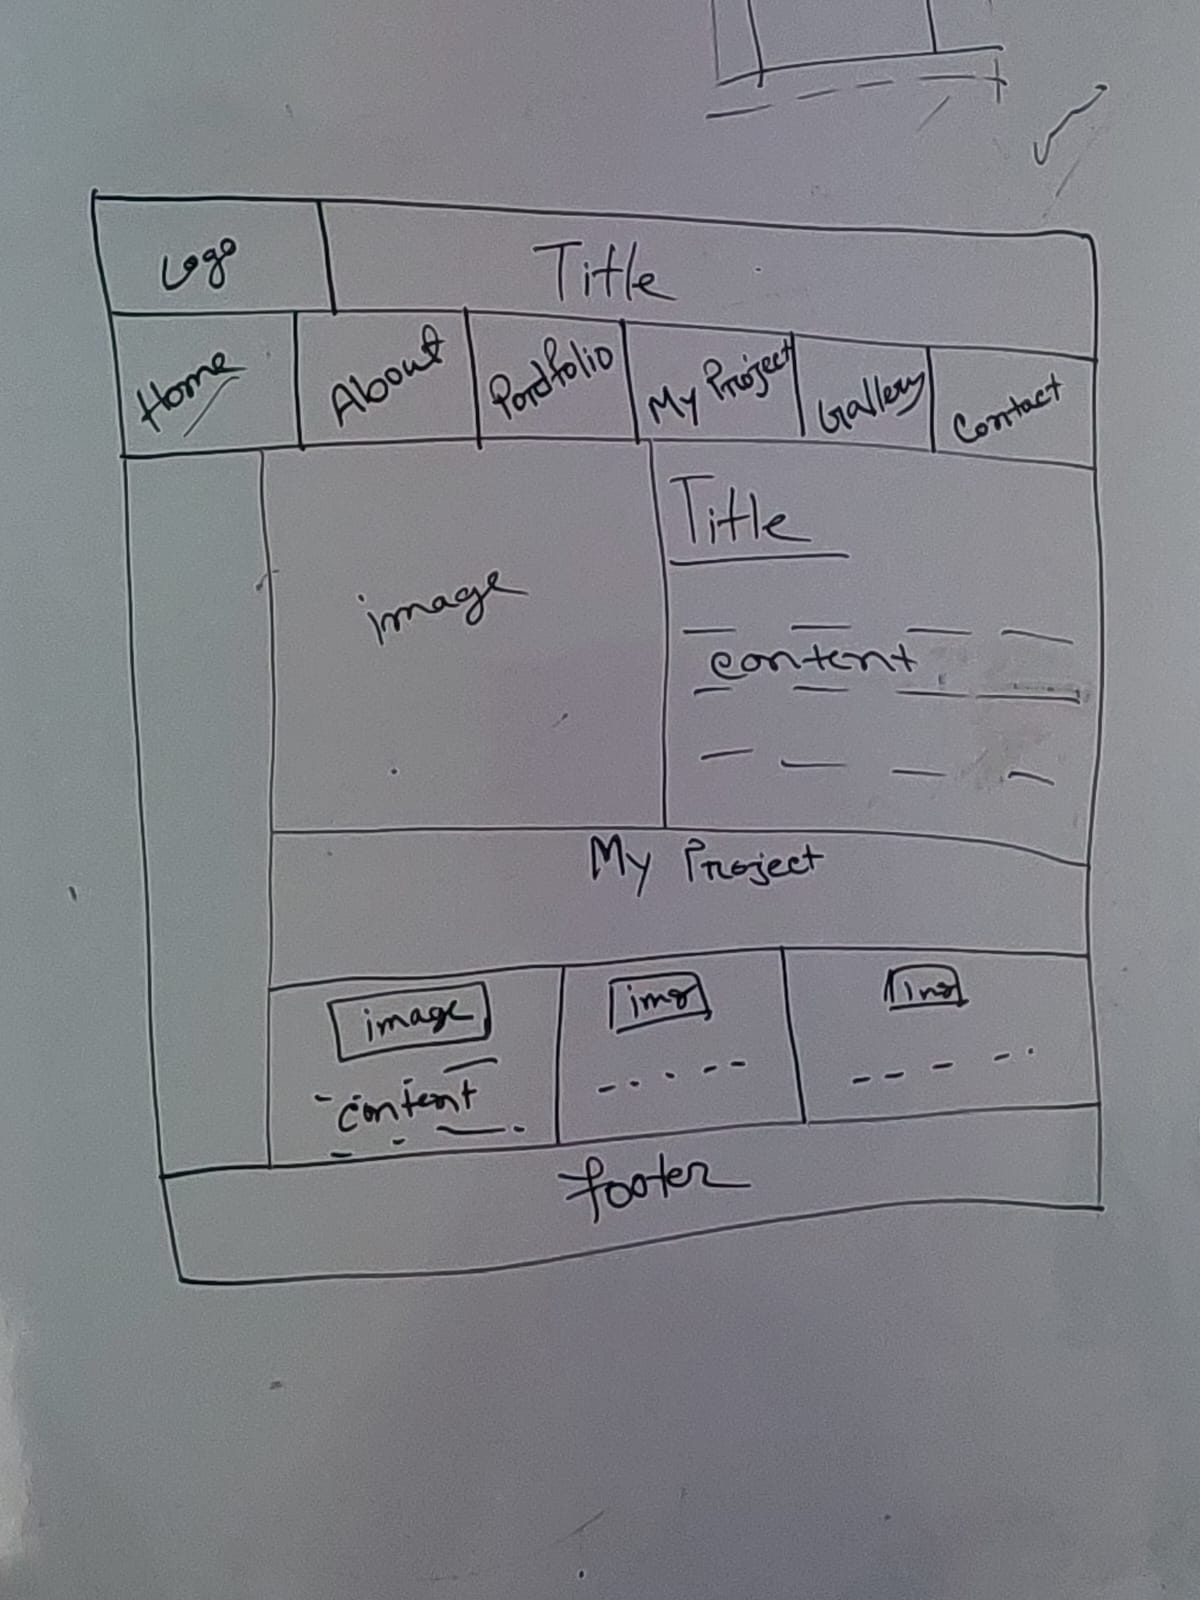 Logo
Title
Home
About
Portfolio
My Project
Gallery
Contact
image
Title
content
My Project
image
img
img
content
footer